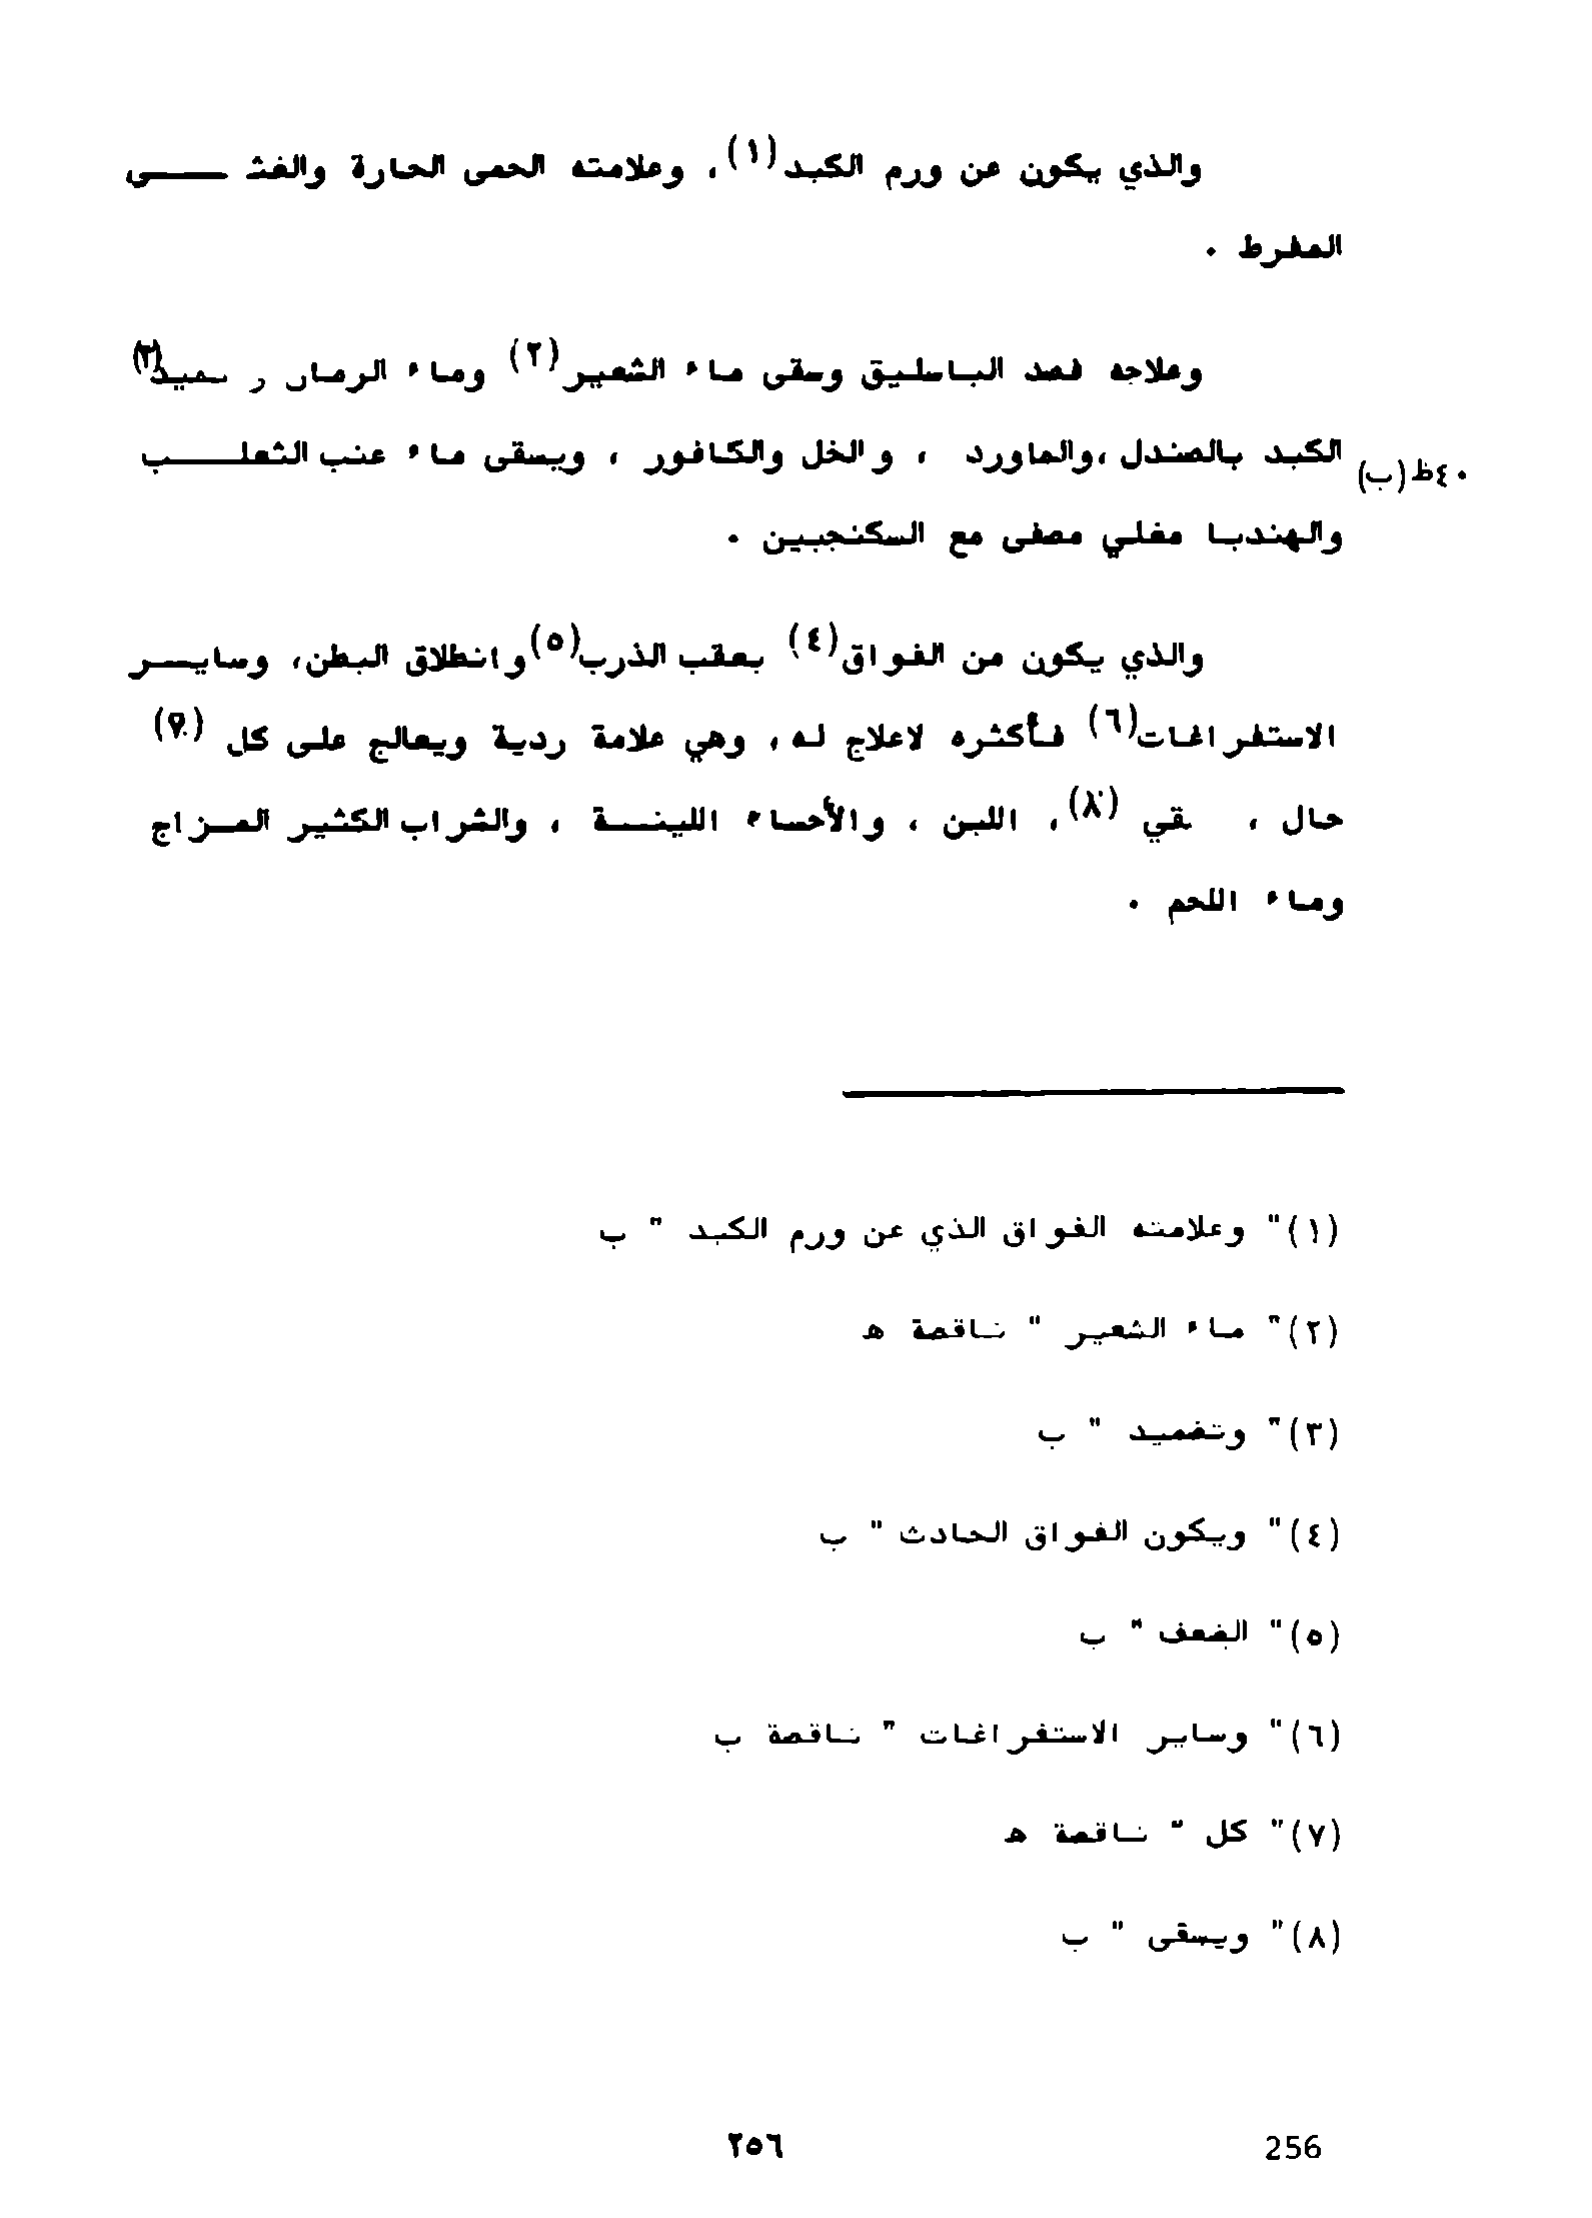 والذي يكون عن ورم الكبد(١)، وعلامته الحمى الحارة والغثـــــى
المفرط ٠
وعلاجه فصد الباسليق وسقى ماء الشعير(٢) وماء الرمان (٣)
الكبد بالصندل ،والماورد ، والخل والكافور ، ويسقى ماء عنب الثعلـــــب
٤٠ظ(ب)
والهندبا مغلي مصفى مع السكنجبيين ٠
والذي يكون من الفواق(٤) بعقب الذرب(٥)وانطلاق البطن، وسايـــر
الاستفراغات(٦) فأكثره لاعلاج له، وهي علامة ردية ويعالج على كل (٧)
حال ، (٨)، اللبن ، والأحساء اللينـــة ، والشراب الكثير المــزاج
وماء اللحم ٠
(١)" وعلامته الفواق الذي عن ورم الكبد " ب
(٢)" ماء الشعير " ناقصة ه
(٣)" وتضميد " ب
(٤)" ويكون الفواق الحادث " ب
(٥)" الضعف " ب
(٦)" وساير الاستفراغات " ناقصة ب
(٧)" كل " ناقصة ه
(٨)" ويسقى " ب
٢٥٦
256